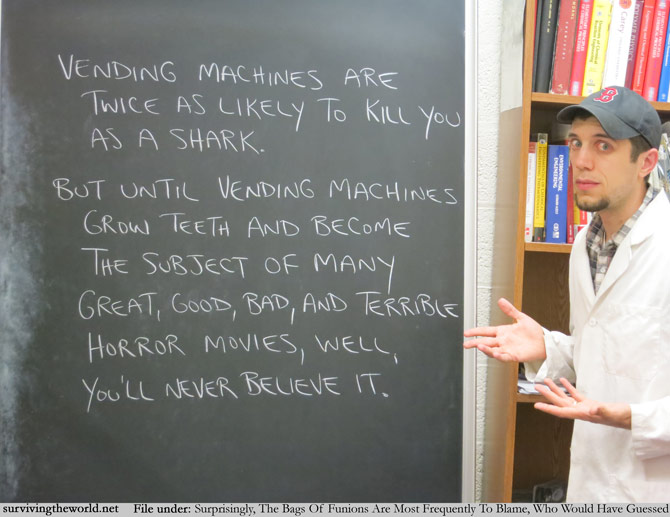 VENDING MACHINES ARE
TWICE AS LIKELY TO KILL YOU
AS A SHARK.
BUT UNTIL VENDING MACHINES
GROW TEETH AND BECOME
THE SUBJECT OF MANY
GREAT, GOOD, BAD, AND TERRIBLE
HORROR MOVIES, WELL,
YOU'LL NEVER BELIEVE IT.
B
Carey
ENVIRONMENTAL
ENGINEERING
survivingtheworld.net File under: Surprisingly, The Bags Of Funions Are Most Frequently To Blame, Who Would Have Guessed